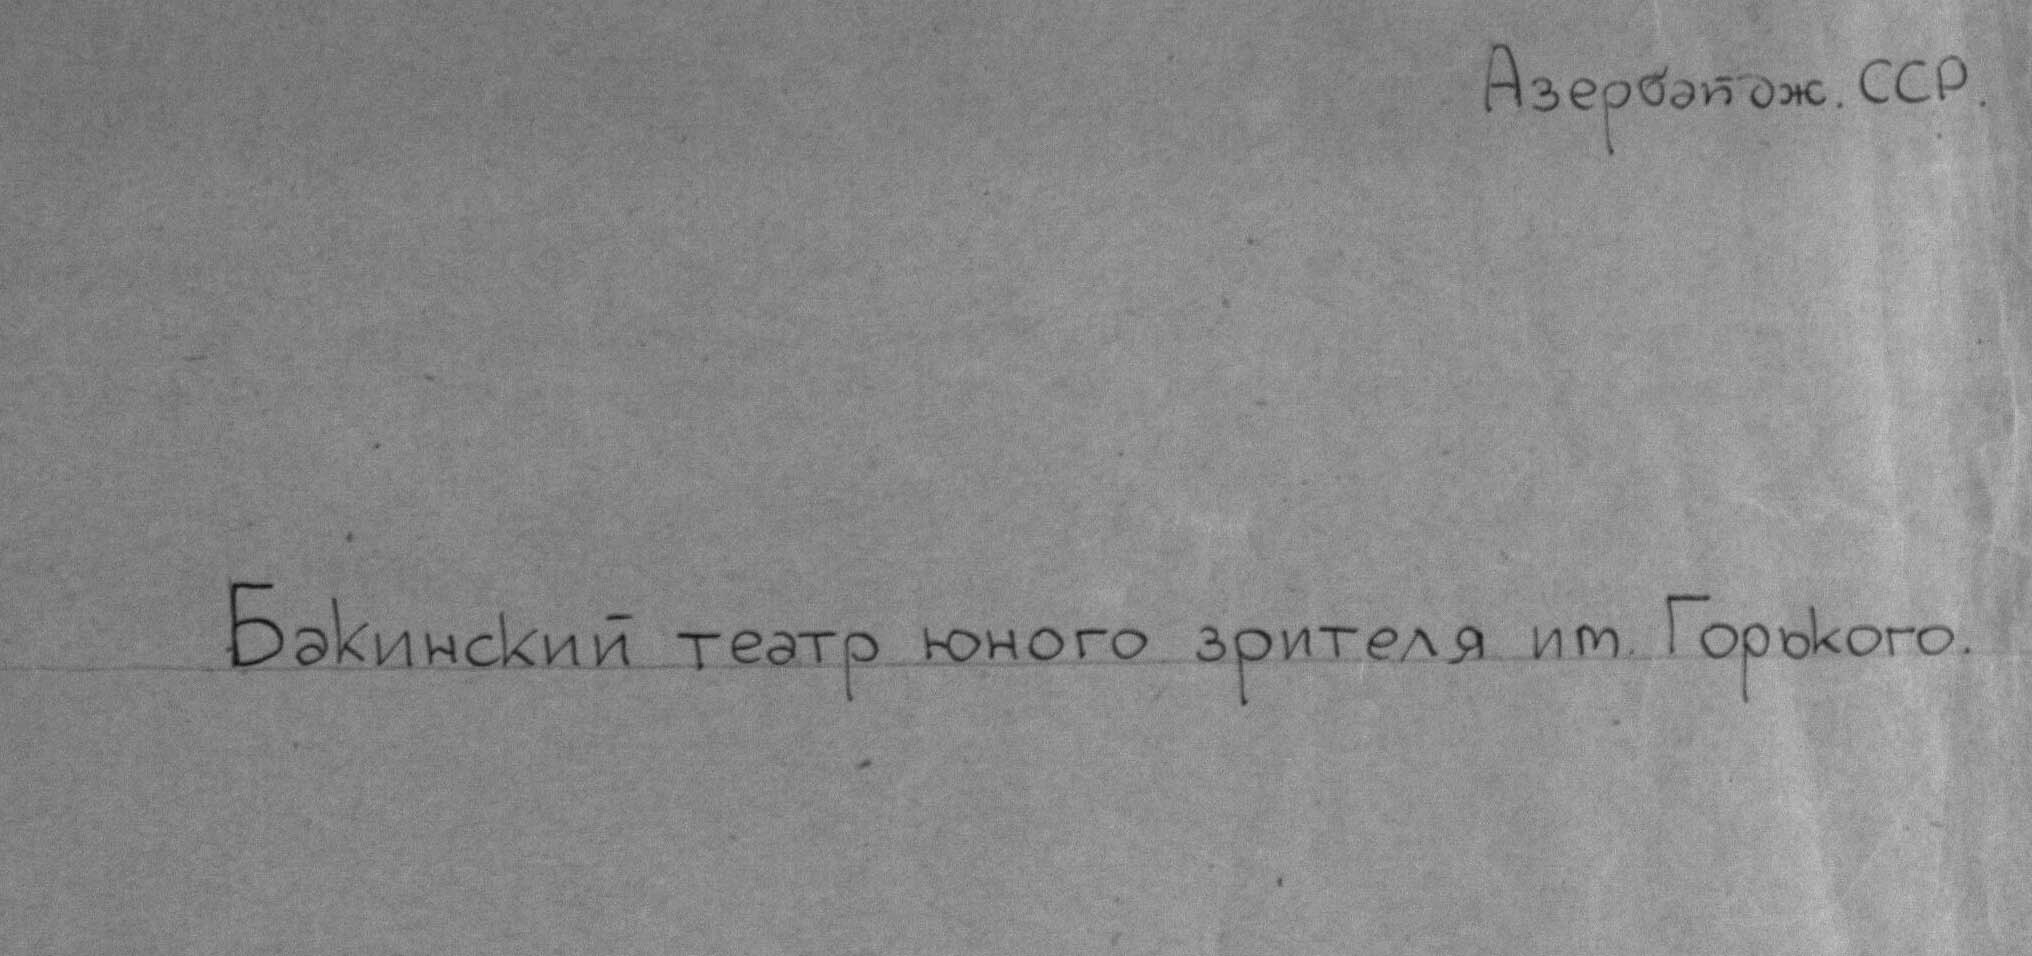 Азербайдж. ССР.
Бакинский театр юного зрителя им. Горького.